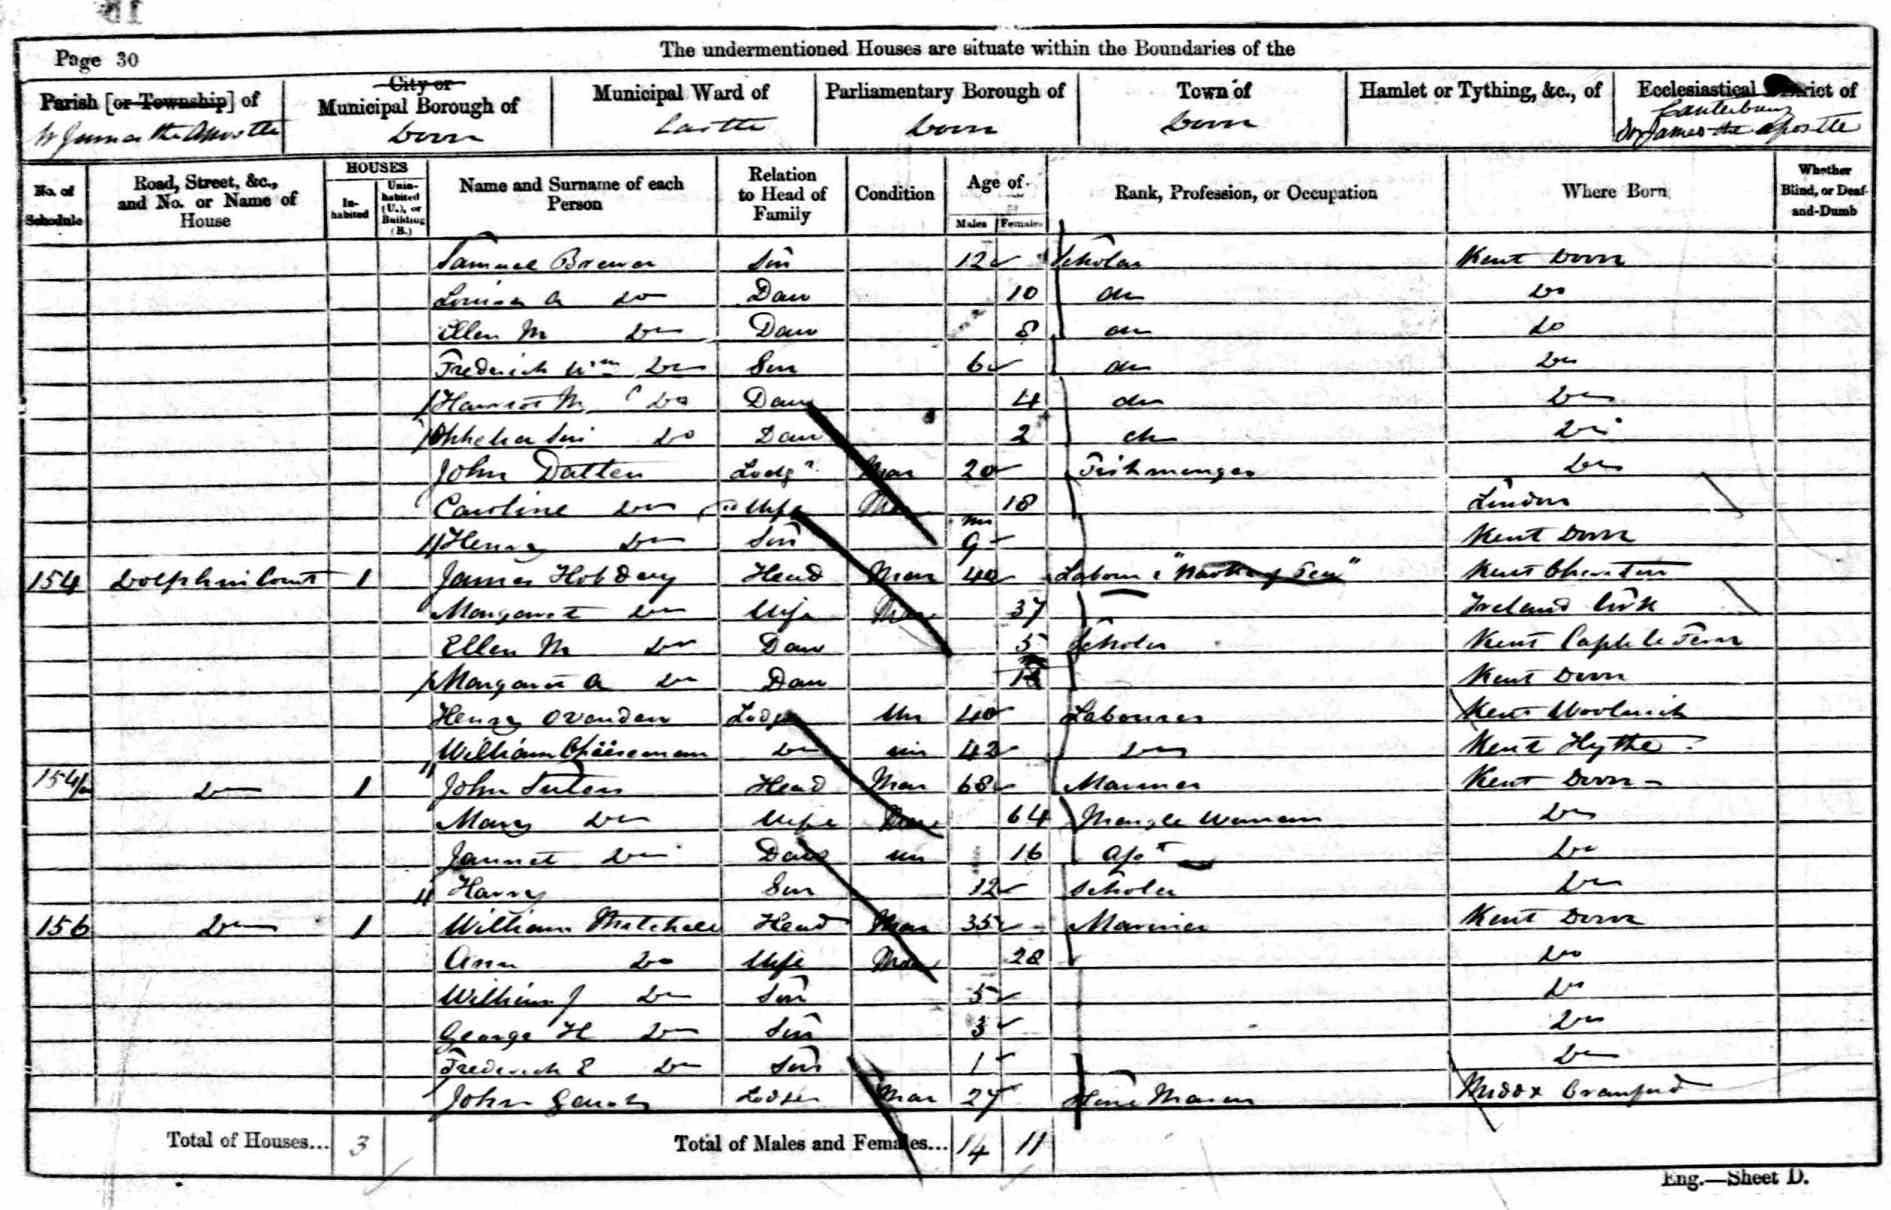 Page 30
The undermentioned Houses are situate within the Boundaries of the
Parish [or Township] of
City or Municipal Borough of
Municipal Ward of
Parliamentary Borough of
Town of
Hamlet or Tything, &c., of
Ecclesiastical District of
St James the Apostle
Dover
Castle
Dover
Dover
Canterbury
St James the Apostle
No. of Schedule
Road, Street, &c., and No. or Name of House
HOUSES
Inhabited
Uninhabited (U.), or Building (B.)
Name and Surname of each Person
Relation to Head of Family
Condition
Age of
Males
Females
Rank, Profession, or Occupation
Where Born
Whether Blind, or Deaf-and-Dumb
Samuel Brewer Son 12 Scholar Kent Dover
Louisa A do Daur 10 do do
Ellen M do Daur 8 do do
Frederick Wm do Son 6 do do
Harriot M do Daur 4 do do
do Daur 2 do do
John Datten Lodgr Mar 20 Fishmonger do
Caroline do Wife Mar 18 London
Henry do Son 9 mo Kent Dover
154 Dolphin Court 1 James Hobday Head Mar 40 Labourer Kent Cheriton
Margaret do Wife Mar 37 Ireland Cork
Ellen M do Daur 5 Scholar Kent Caple le Fern
Margaret A do Daur Kent Dover
Henry Ovenden Lodgr Un 40 Labourer Kent Woolwich
William Cheeseman do Un 42 do Kent Hythe
154/a do 1 John Head Mar 68 Mariner Kent Dover
Mary do Wife Mar 64 Mangle Woman do
Jannet do Daur un 16 do
Harry Son 12 Scholar do
156 do 1 William Mitchell Head Mar 35 Mariner Kent Dover
Ann do Wife Mar 28 do
William J do Son 5 do
George H do Son 3 do
Frederick E do Son 1 do
John Lodger Mar 27 Stone Mason Middx Cranford
Total of Houses... 3
Total of Males and Females... 14 11
Eng.—Sheet D.